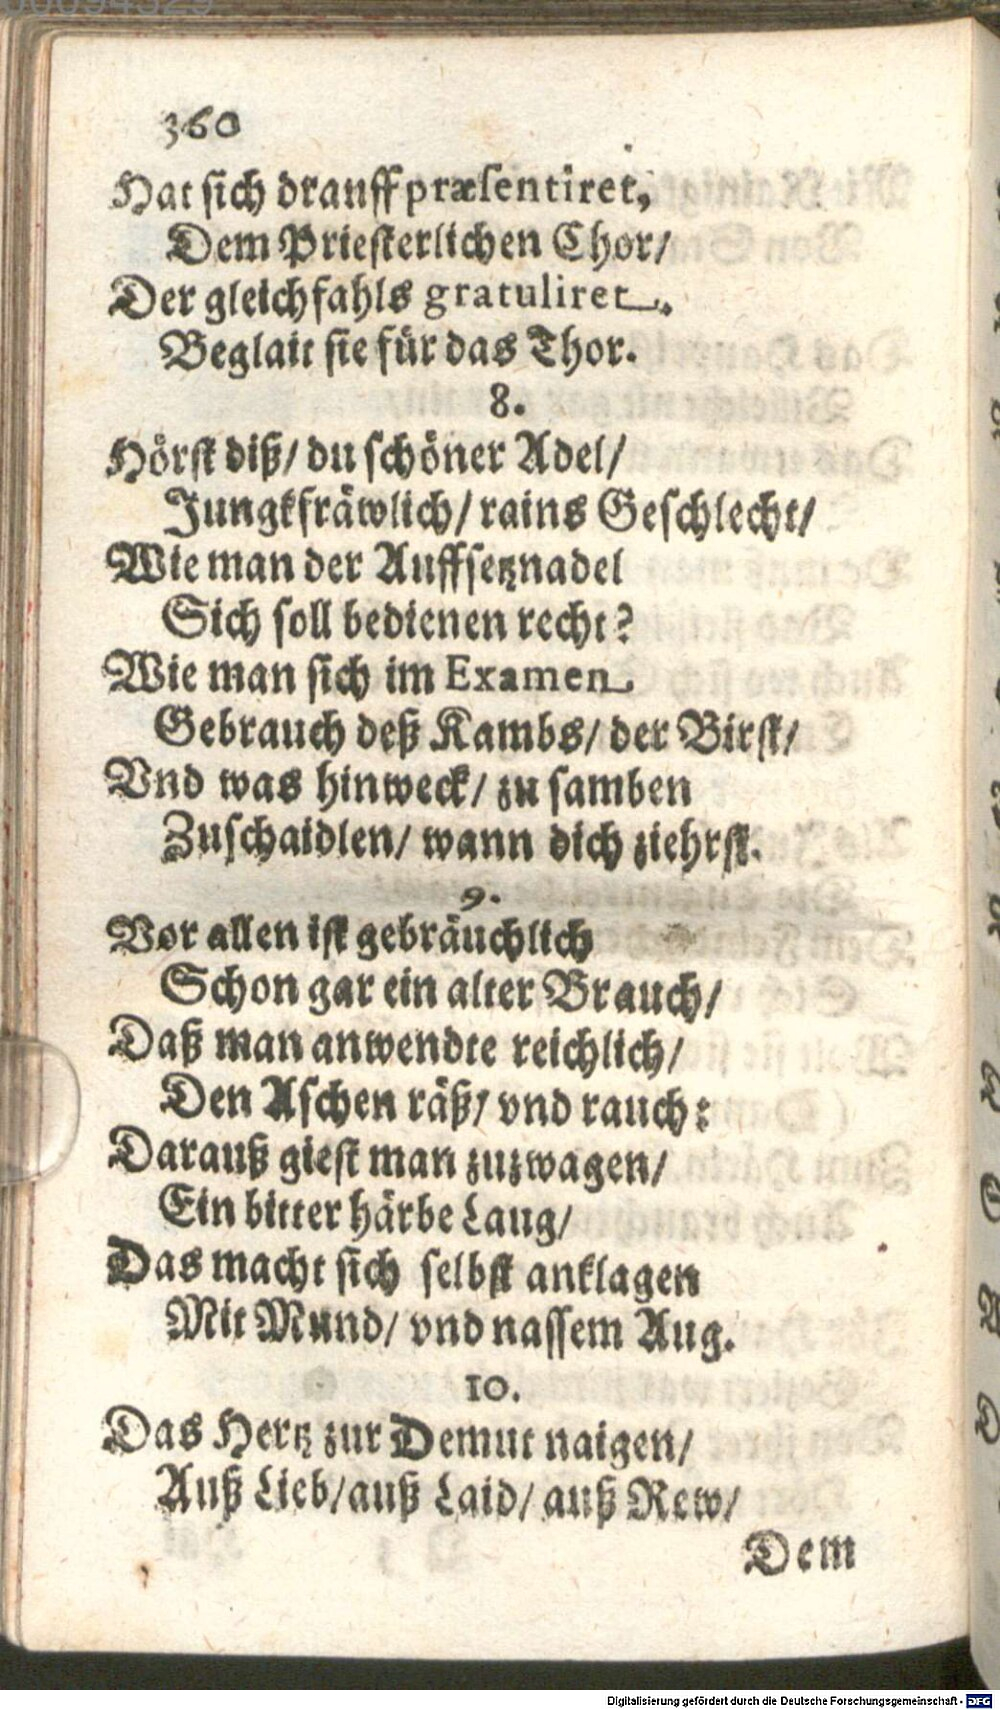 00094329
360
Hat sich drauff præsentiret,
Dem Priesterlichen Chor/
Der gleichfahls gratuliret.
Beglait sie für das Thor.
8.
Hörst diß/ du schöner Adel/
Jungkfräwlich/ rains Geschlecht/
Wie man der Auffsetznadel
Sich soll bedienen recht?
Wie man sich im Examen
Gebrauch deß Kambs/ der Birst/
Vnd was hinweck/ zu samben
Zuschaidlen/ wann dich ziehrst.
9.
Vor allen ist gebräuchlich
Schon gar ein alter Brauch/
Daß man anwendte reichlich/
Den Aschen räß/ vnd rauch:
Darauß giest man zuzwagen/
Ein bitter härbe Laug/
Das macht sich selbst anklagen
Mit Mund/ vnd nassem Aug.
10.
Das Hertz zur Demut naigen/
Auß Lieb/ auß Laid/ auß Rew/
Dem
Digitalisierung gefördert durch die Deutsche Forschungsgemeinschaft - DFG